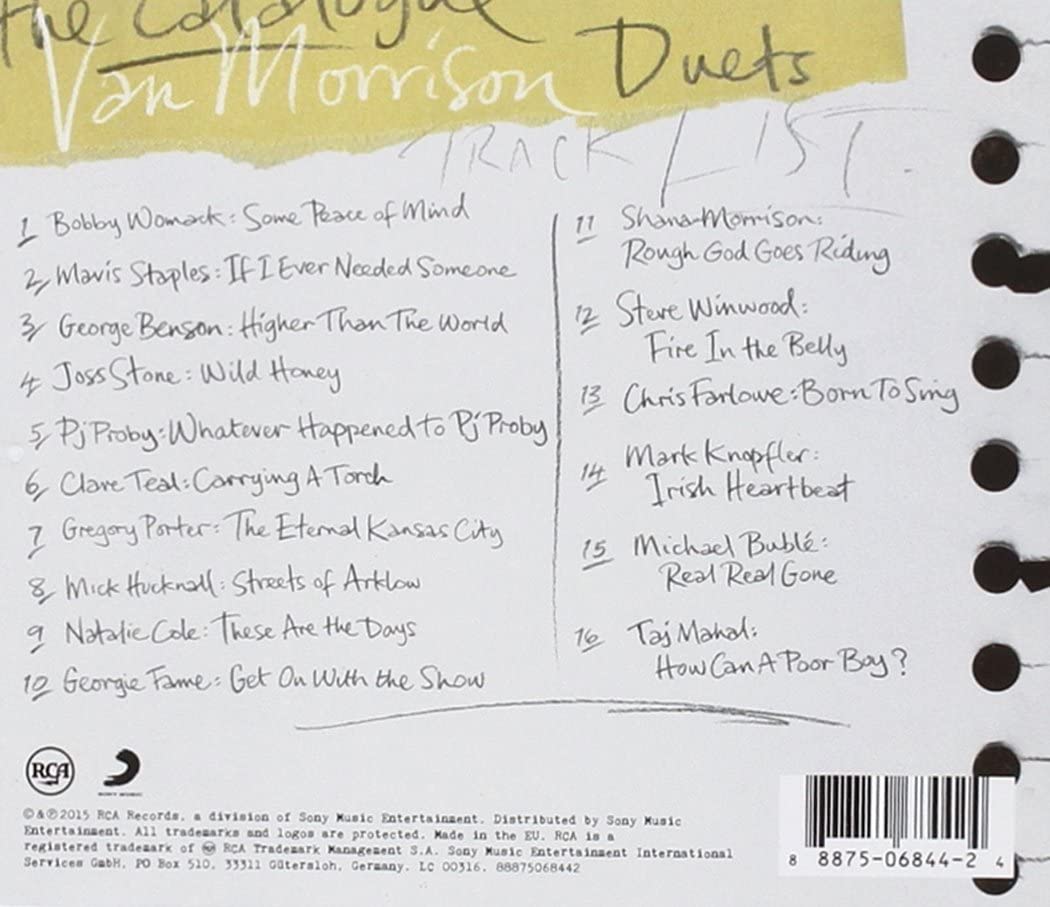 the Catalogue
Van Morrison Duets
TRACK LIST
1 Bobby Womack: Some Peace of Mind
2 Mavis Staples: If I Ever Needed Someone
3 George Benson: Higher Than The World
4 Joss Stone: Wild Honey
5 Pj Proby: Whatever Happened to Pj Proby
6 Clare Teal: Carrying A Torch
7 Gregory Porter: The Eternal Kansas City
8 Mick Hucknall: Streets of Arklow
9 Natalie Cole: These Are the Days
10 Georgie Fame: Get On With the Show
11 Shana Morrison:
Rough God Goes Riding
12 Steve Winwood:
Fire In the Belly
13 Chris Farlowe: Born To Sing
14 Mark Knopfler:
Irish Heartbeat
15 Michael Bublé:
Real Real Gone
16 Taj Mahal:
How Can A Poor Boy?
RCA
SONY MUSIC
©&℗2015 RCA Records, a division of Sony Music Entertainment. Distributed by Sony Music
Entertainment. All trademarks and logos are protected. Made in the EU. RCA is a
registered trademark of RCA Trademark Management S.A. Sony Music Entertainment International
Services GmbH, PO Box 510, 33311 Gütersloh, Germany. LC 00316. 88875068442
8 8875-06844-2 4